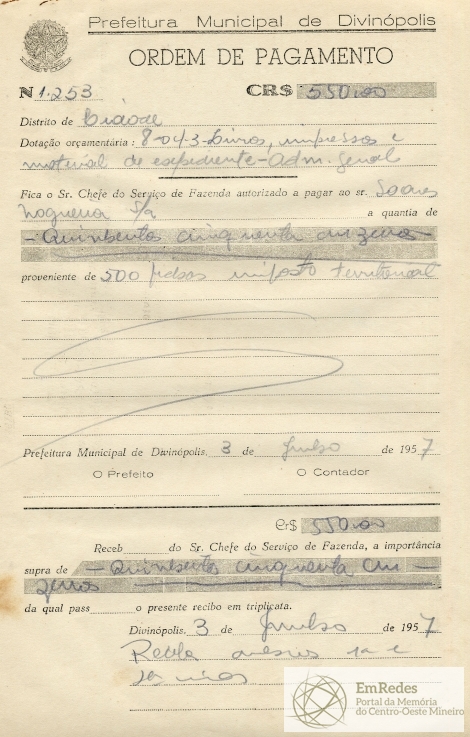 Prefeitura Municipal de Divinópolis
ORDEM DE PAGAMENTO
N 1.253 CR$ 550,00
Distrito de Cidade
Dotação orçamentária: 8-04-3-Livros, impressos e
material de expediente-Adm. Geral
Fica o Sr. Chefe do Serviço de Fazenda autorizado a pagar ao sr. Soares
Nogueira S/a a quantia de
- Quinhentos cinquenta cruzeiros -
proveniente de 500 fichas imposto territorial
Prefeitura Municipal de Divinópolis, 3 de Junho de 1957
O Prefeito O Contador
Cr$ 550,00
Receb do Sr. Chefe do Serviço de Fazenda, a importância
supra de - Quinhentos cinquenta cru-
zeiros
da qual pass o presente recibo em triplicata.
Divinópolis, 3 de Junho de 1957
1a e
2a vias
EmRedes
Portal da Memória
do Centro-Oeste Mineiro